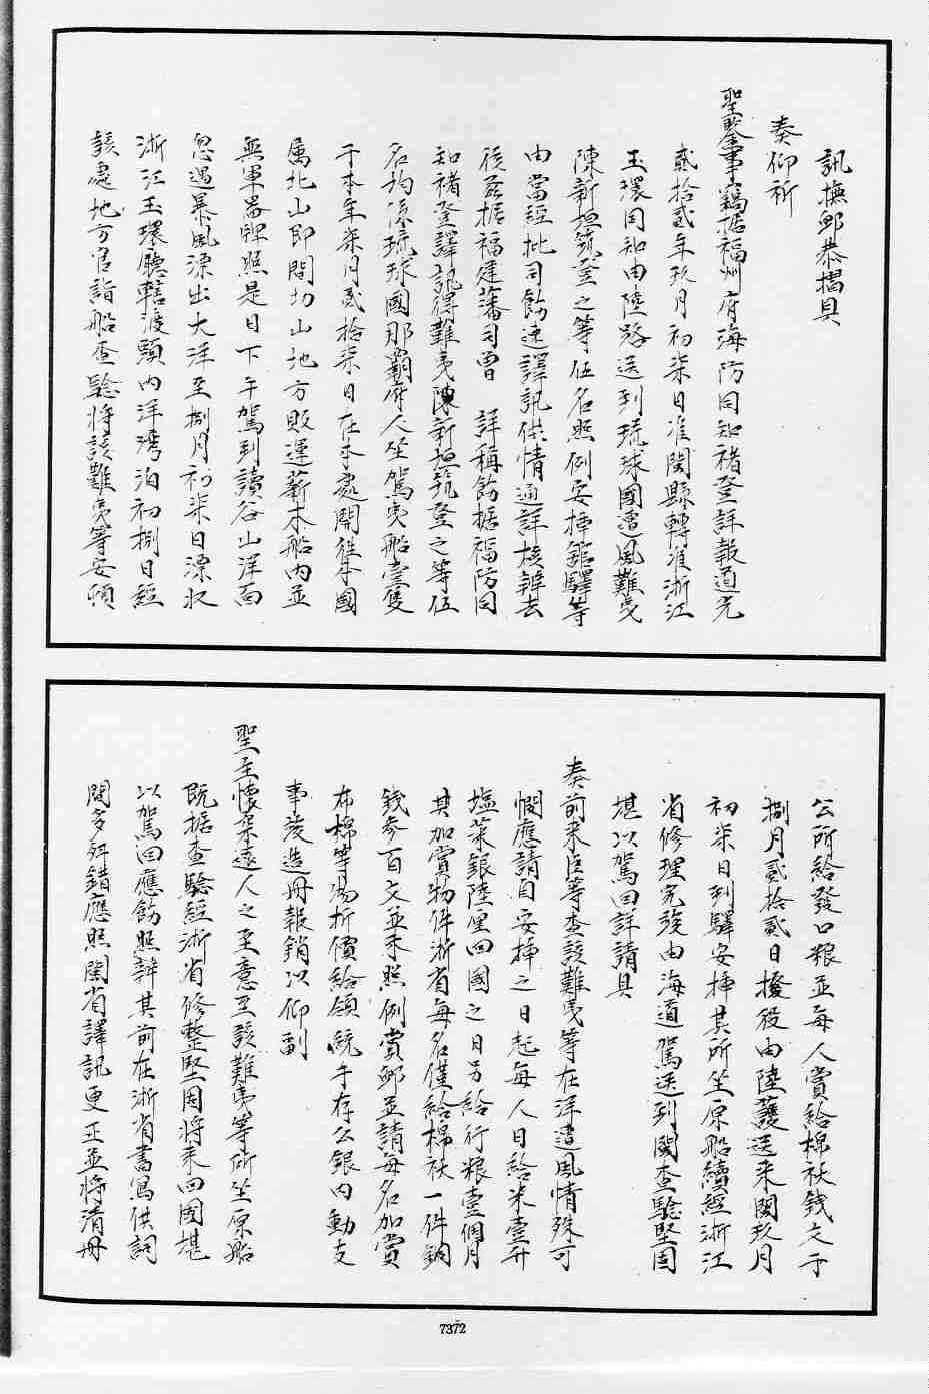 訊撫卹恭摺具
奏仰祈
聖鑒事竊據福州府海防同知褚登詳報道光
貳拾貳年玖月初柒日准閩縣轉准浙江
玉環同知由陸路送到琉球國遭風難夷
陳新垣筑登之等伍名照例安插館驛等
由當經批司飭速譯訊供情通詳核辦去
後茲據福建藩司曾 詳稱飭據福防同
知褚登譯訊得難夷陳新垣筑登之等伍
名均係琉球國那霸府人坐駕夷船壹隻
于本年柒月貳拾柒日在本處開往本國
屬北山即間切山地方販運薪木船內並
無軍器牌照是日下午駕到讀谷山洋面
忽遇暴風漂出大洋至捌月初柒日漂收
浙江玉環廳轄披頭內洋灣泊初捌日經
該處地方官詣船查驗將該難夷等安頓
公所給發口粮並每人賞給棉袄錢文于
捌月貳拾貳日撥役由陸護送來閩玖月
初柒日到驛安插其所坐原船續經浙江
省修理完旋由海道駕送到閩查驗堅固
堪以駕回詳請具
奏前來臣等查該難夷等在洋遭風情殊可
憫應請自安插之日起每人日給米壹升
塩菜銀陸厘回國之日另給行粮壹個月
其加賞物件浙省每名僅給棉袄一件銅
錢參百文並未照例賞卹並請每名加賞
布棉等物折價給領統于存公銀內動支
事竣造冊報銷以仰副
聖主懷柔遠人之至意至該難夷等所坐原船
既據查驗經浙省修整堅固將來回國堪
以駕回應飭照辦其前在浙省書寫供詞
間多舛錯應照閩省譯訊更正並將清冊
7372